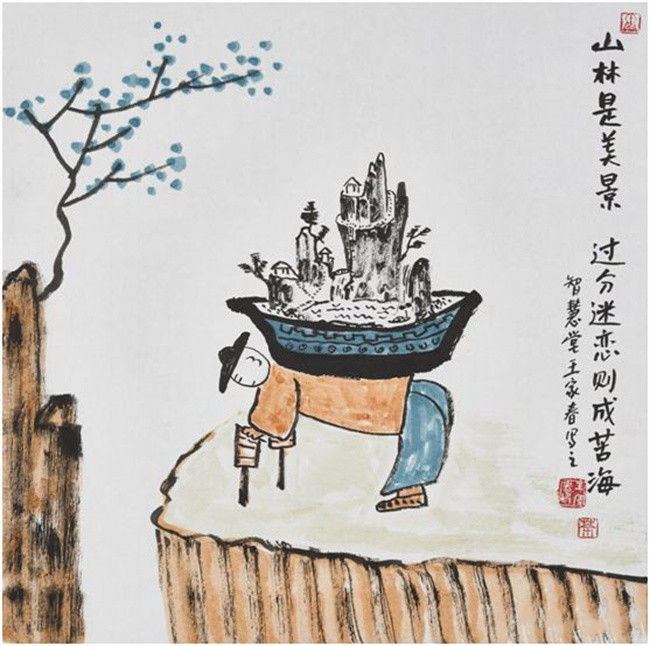 山林是美景 过分迷恋则成苦海
智慧堂王家春写之